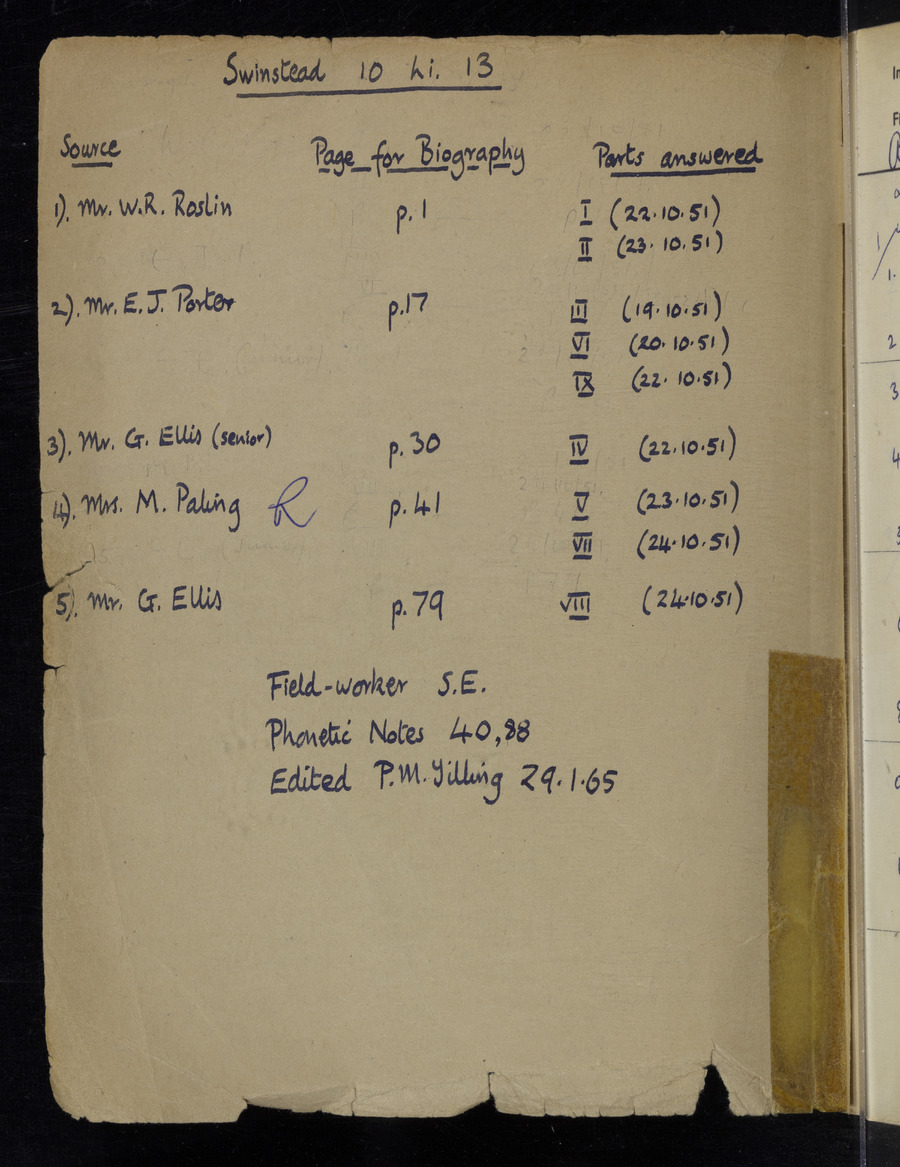 Swinstead 10 Li. 13
Source Page for Biography Parts answered
1). Mr. W.R. Roslin p. 1 I (22.10.51)
II (23.10.51)
2). Mr. E. J. Porter p.17 III (19.10.51)
VI (20.10.51)
IX (22.10.51)
3). Mr. G. Ellis (senior) p. 30 IV (22.10.51)
4). Mrs. M. Paling R p. 41 V (23.10.51)
VII (24.10.51)
5). Mr. G. Ellis p. 79 VIII (24.10.51)
Field-worker S.E.
Phonetic Notes 40,88
Edited P.M. Tilling 29.1.65